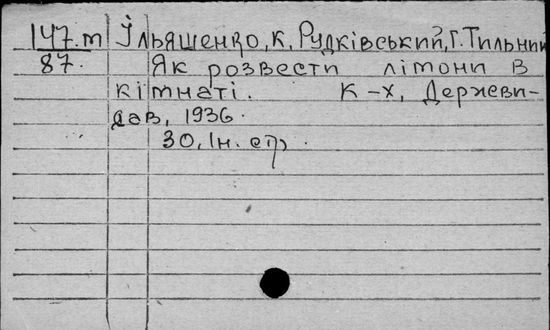 147.т Ільяшенко, К, Рудківський, Г. Тильний
87. Як розвести лімони в
кімнаті. К-х, Держви-
дав, 1936.
30, Ін. ст.